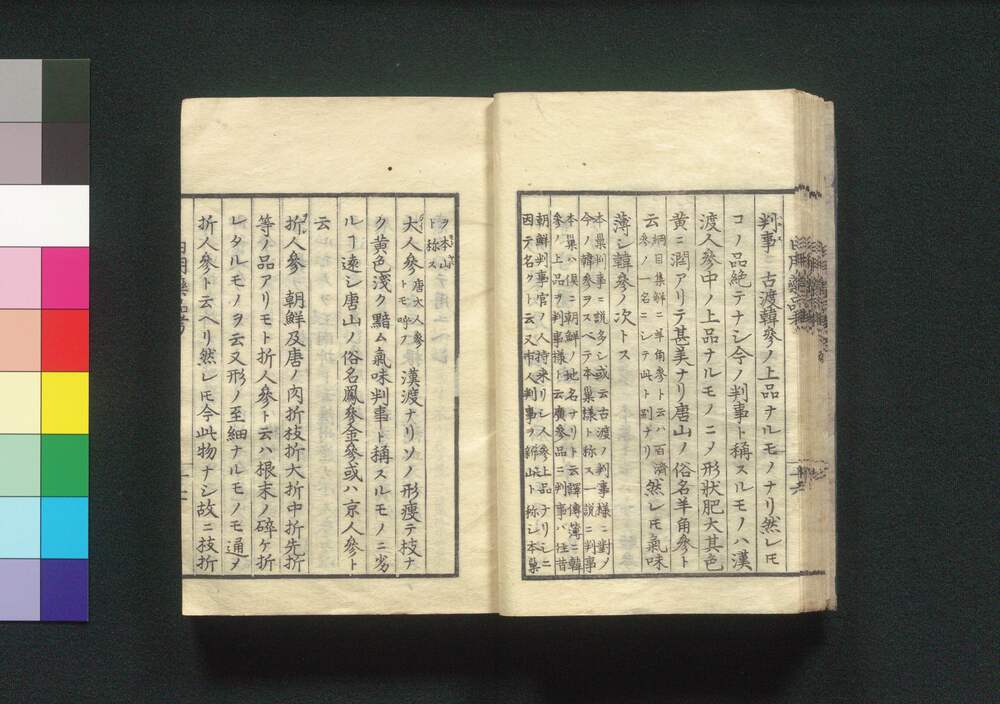 判事ニ古渡韓參ノ上品ナルモノナリ然レㇳモ
コノ品絶テナシ今ノ判事ト稱スルモノハ漢
渡人參中ノ上品ナルモノニㇱテ形狀肥大其色
黄ニ潤アリテ甚美ナリ唐山ノ俗名羊角參ト
云
綱目集解ニ羊角參ト云ハ百濟
參ノ一名ニシテ此ト別ナリ
然レㇳモ氣味
薄シ韓參ノ次トス
本巢判事ニ説多シ或云古渡ノ判事様ニ對ノ
今ノ韓參ヲスベテ本巢様ト称ス一説ニ判事
本巢ハ倶ニ朝鮮ノ地名ナリト云譯傳簿ニ韓
參ノ上品ヲ判事様ト云廣參品ニ判事ハ往昔
朝鮮判事官ノ人持来リシ人參上品ナリシニ
因テ名クト云又市人判事ヲ新山ト称シ本巢
ヲ本山
ト称ス
大人參
唐大人參
トモ呼フ
漢渡ナリソノ形瘦テ枝ナ
ク黄色淺ク黯ム氣味判事ト稱スルモノニ劣
ルㇰ遠シ唐山ノ俗名鳳參金參或ハ京人參ト
云
折人參 朝鮮及唐ノ肉折枝折大折中折先折
等ノ品アリモト折人參ト云ハ根末ノ碎ケ折
レタルモノヲ云又形ノ至細ナルモノモ通ㇱテ
折人參ト云ヘリ然レㇳモ今此物ナシ故ニ枝折